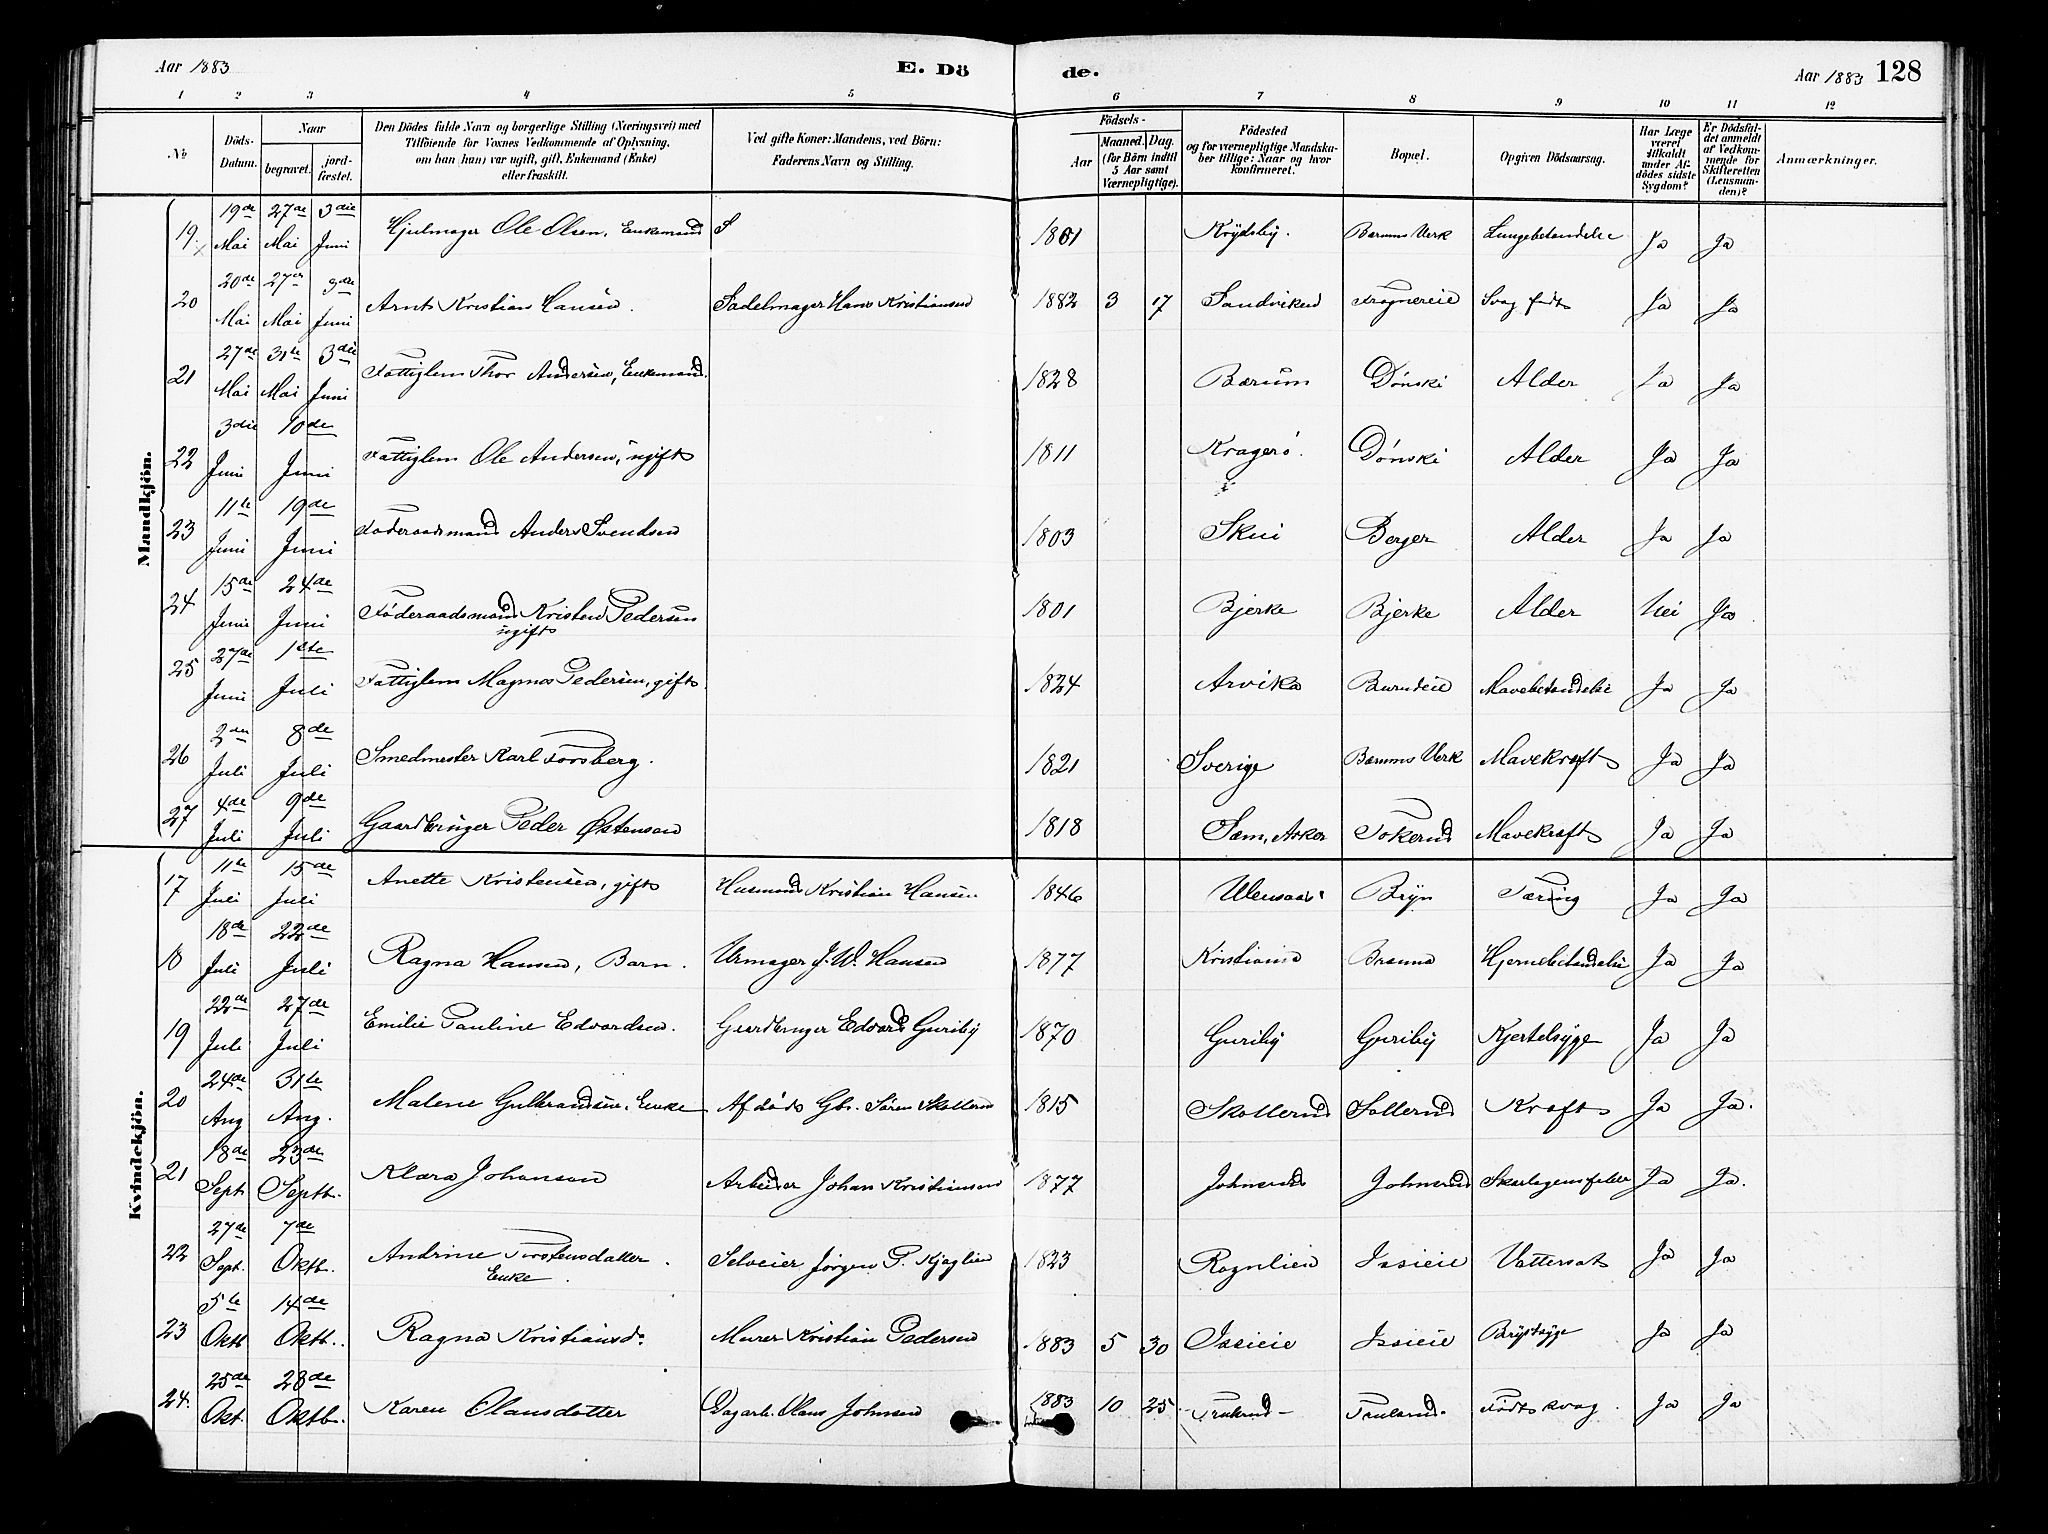 Aar 1883 E. Dö de. Aar 1883 128
1 2 3 4 5 6 7 8 9 10 11 12
No Döds-Datum. Naar begravet. jordfæstet. Den Dödes fulde Navn og borgerlige Stilling (Næringsvei) med Tilföiende for Voxnes Vedkommende af Oplysning, om han (hun) var ugift, gift, Enkemand (Enke) eller fraskilt. Ved gifte Koner: Mandens, ved Börn: Faderens Navn og Stilling. Födsels- Aar Maaned. Dag. (for Börn indtil 5 Aar samt Værnepligtige). Födested og for værnepligtige Mandskaber tillige: Naar og hvor konfirmeret. Bopæl. Opgiven Dödsaarsag. Har Læge været tilkaldt under Afdödes sidste Sygdom? Er Dödsfaldet anmeldt af Vedkommende for Skifteretten (Lensmanden)? Anmærkninger.
Mandkjön.
19 19de Mai 27de Mai 3die Juni Hjulmager Ole Olsen, Enkemand 1801 Krydsby. Bærums Verk Lungebetændelse Ja Ja
20 20de Mai 27de Mai 3die Juni Arnt Kristian Hansen. Sadelmager Hans Kristiansen 1882 3 17 Sandviken Frognereie Svag født Ja Ja
21 27de Mai 31te Mai 3die Juni Fattiglem Thor Andersen, Enkemand. 1828 Bærum Dønski Alder Ja Ja
22 3die Juni 10de Juni Fattiglem Ole Andersen, ugift 1811 Kragerø. Dønski Alder Ja Ja
23 11te Juni 19de Juni Føderaadsmand Anders Svendsen 1803 Skui Berger Alder Ja Ja
24 15de Juni 24de Juni Føderaadsmand Kristen Pedersen ugift 1801 Bjerke Bjerke Alder Nei Ja
25 27de Juni 1ste Juli Fattiglem Magnus Pedersen, gift. 1824 Arvika Mavebetændelse Ja Ja
26 2den Juli 8de Juli Smedmester Karl Forsberg. 1821 Sverige Bærums Verk Mavekræft Ja Ja
27 4de Juli 9de Juli Gaardbruger Peder Østensen 1818 Sem, Asker Tokerud Mavekræft Ja Ja
Kvindekjön.
17 11te Juli 15de Juli Anette Kristensen, gift Husmand Kristian Hansen 1846 Ullensaker Bryn Tæring Ja Ja
18 18de Juli 22de Juli Ragna Hansen, Barn. Urmager J. W. Hansen 1877 Kristiania Hjernebetændelse Ja Ja
19 22de Juli 27de Juli Emilie Pauline Edvardsen. Gaardbruger Edvard Guriby 1870 Guriby Guriby Kjertelsyge Ja Ja
20 24de Aug 31te Aug. Malene Gulbrandsen, Enke Afdøde Gbr. Søren Skollerud 1815 Skollerud Sollerud Kræft Ja Ja.
21 18de Sept. 23de Septb. Klara Johansen Arbeider Johan Kristiansen 1877 Johnsrud Johnsrud Skarlagensfeber Ja Ja.
22 27de Sept. 7de Oktb. Andrine Torstensdatter. Enke. Selveier Jørgen P. Kjaglien 1823 Rognlien Issieie Vattersot Ja Ja
23 5te Oktb 14de Oktb. Ragna Kristiansd. Murer Kristian Pedersen 1883 5 30 Issieie Issieie Brystsyge Ja Ja
24. 25de Okt. 28de Oktb. Karen Olausdatter Dagarb. Olaus Johnsen 1883 10 25 Født svag. Ja Ja